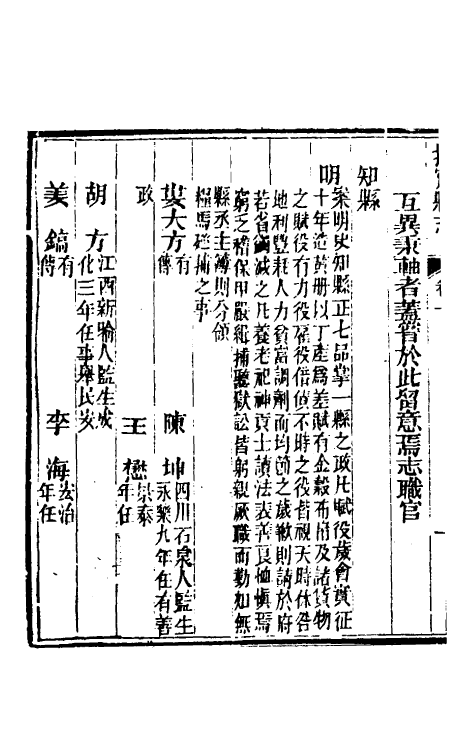 縣志
互異秉軸者蓋嘗於此留意焉志職官
知縣
明 案明史知縣正七品掌一縣之政凡賦役歲會實征
十年造黃冊以丁產爲差賦有金穀布帛及諸貨物
之賦役有力役雇役借倩不時之役皆視天時休咎
地利豐耗人力貧富調劑而均節之歲歉則請於府
若省蠲減之凡養老祀神貢士讀法表善良恤
窮乏稽保甲嚴緝捕聽獄訟皆躬親厥職而勤
縣丞主簿則分領
糧馬巡捕之事
婁大方 有傳 陳坤 四川石泉人監生永樂九年任有善
政 王懋 景泰年任
胡方 江西新喻人監生成化三年任事舉民安
姜鎬 有傳 李海 弘治年任